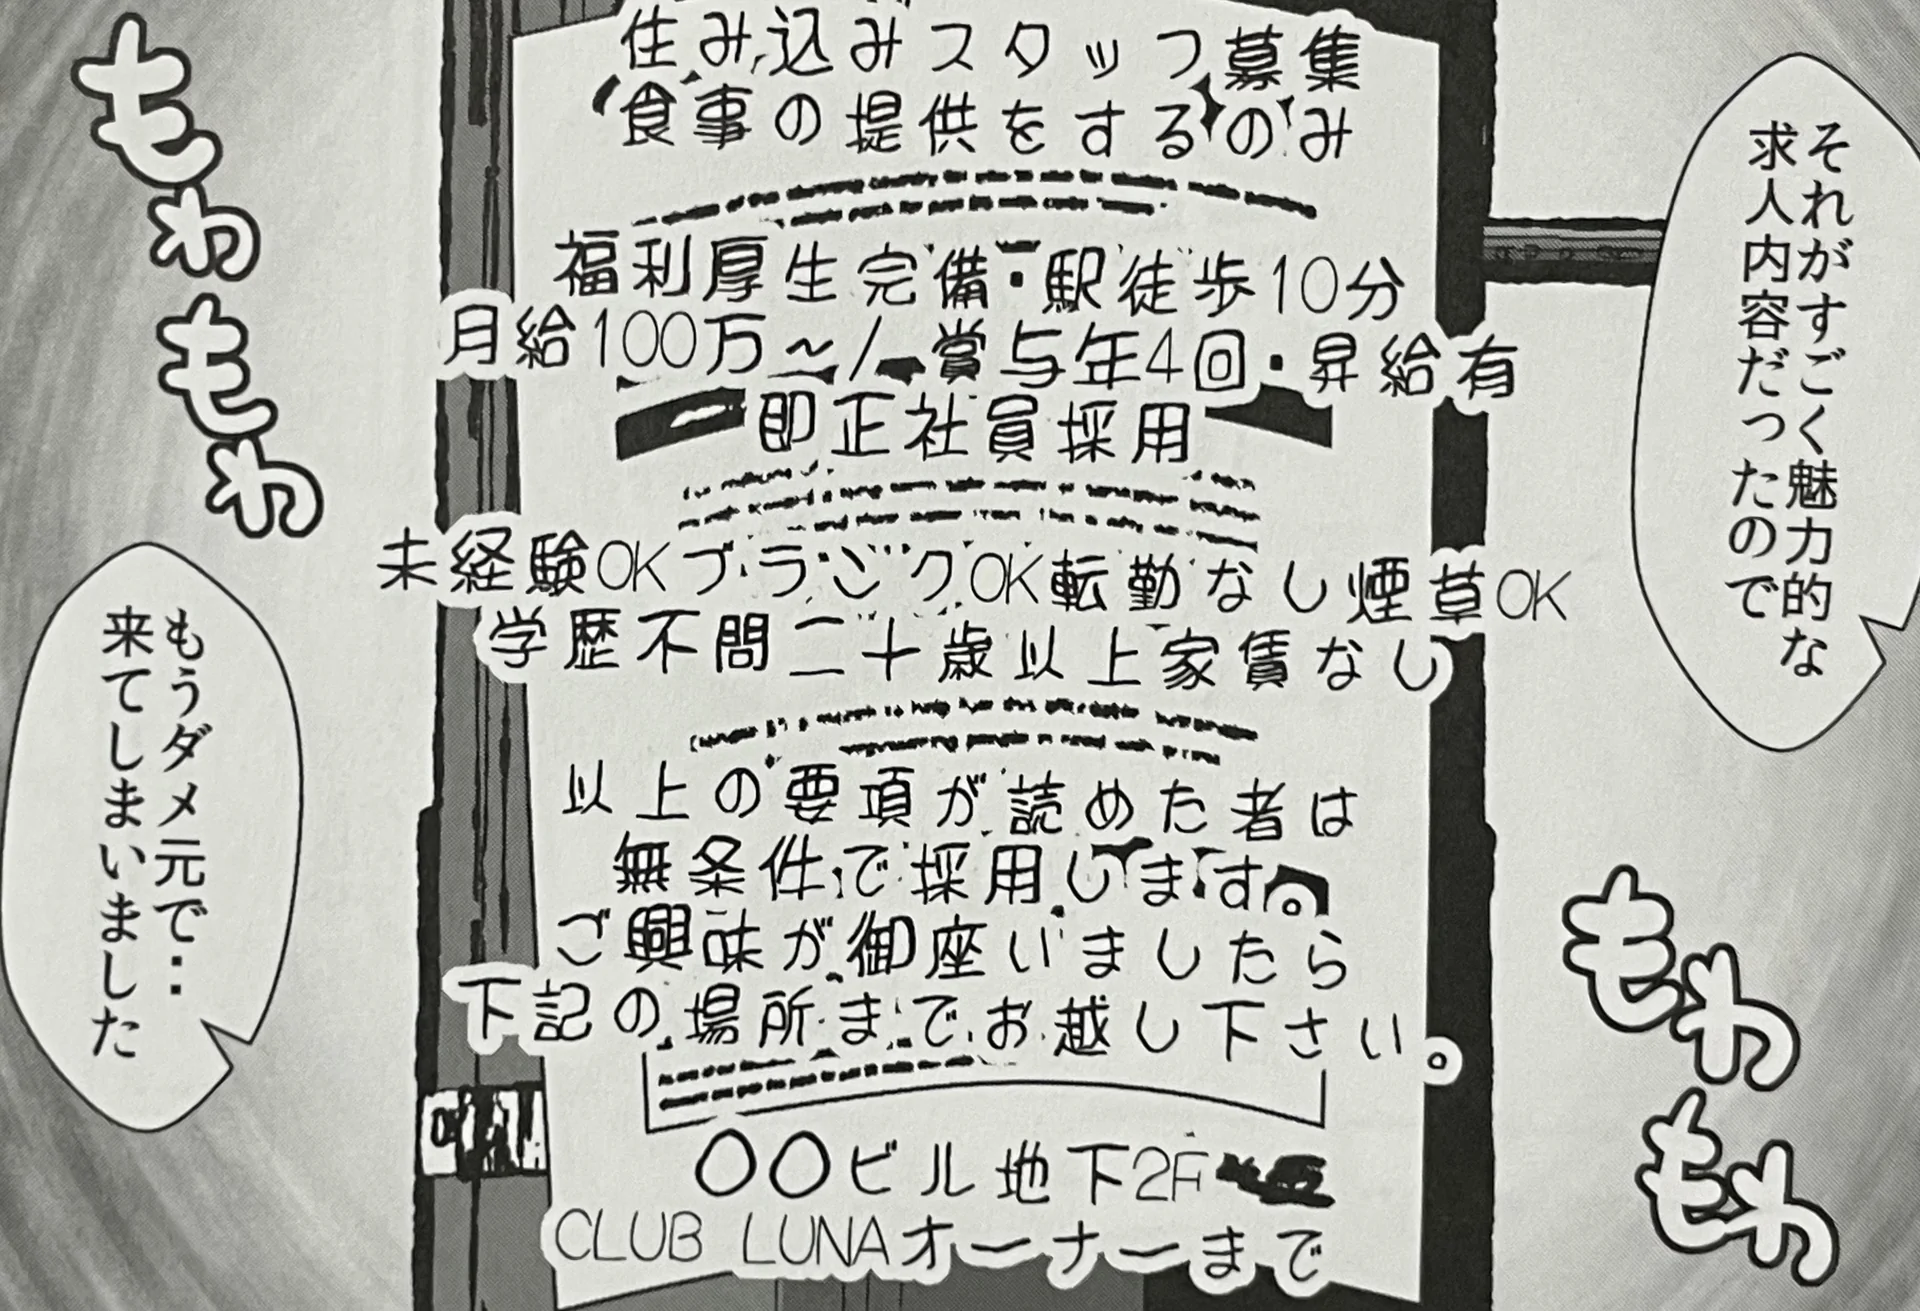 それがすごく魅力的な
求人内容だったので
住み込みスタッフ募集
食事の提供をするのみ
福利厚生完備・駅徒歩10分
月給100万~/賞与年4回・昇給有
即正社員採用
未経験OKブランクOK転勤なし煙草OK
学歴不問二十歳以上家賃なし
以上の要項が読めた者は
無条件で採用します。
ご興味が御座いましたら
下記の場所までお越し下さい。
〇〇ビル地下2F
CLUB LUNAオーナーまで
もわもわ
もわもわ
もうダメ元で‥
来てしまいました